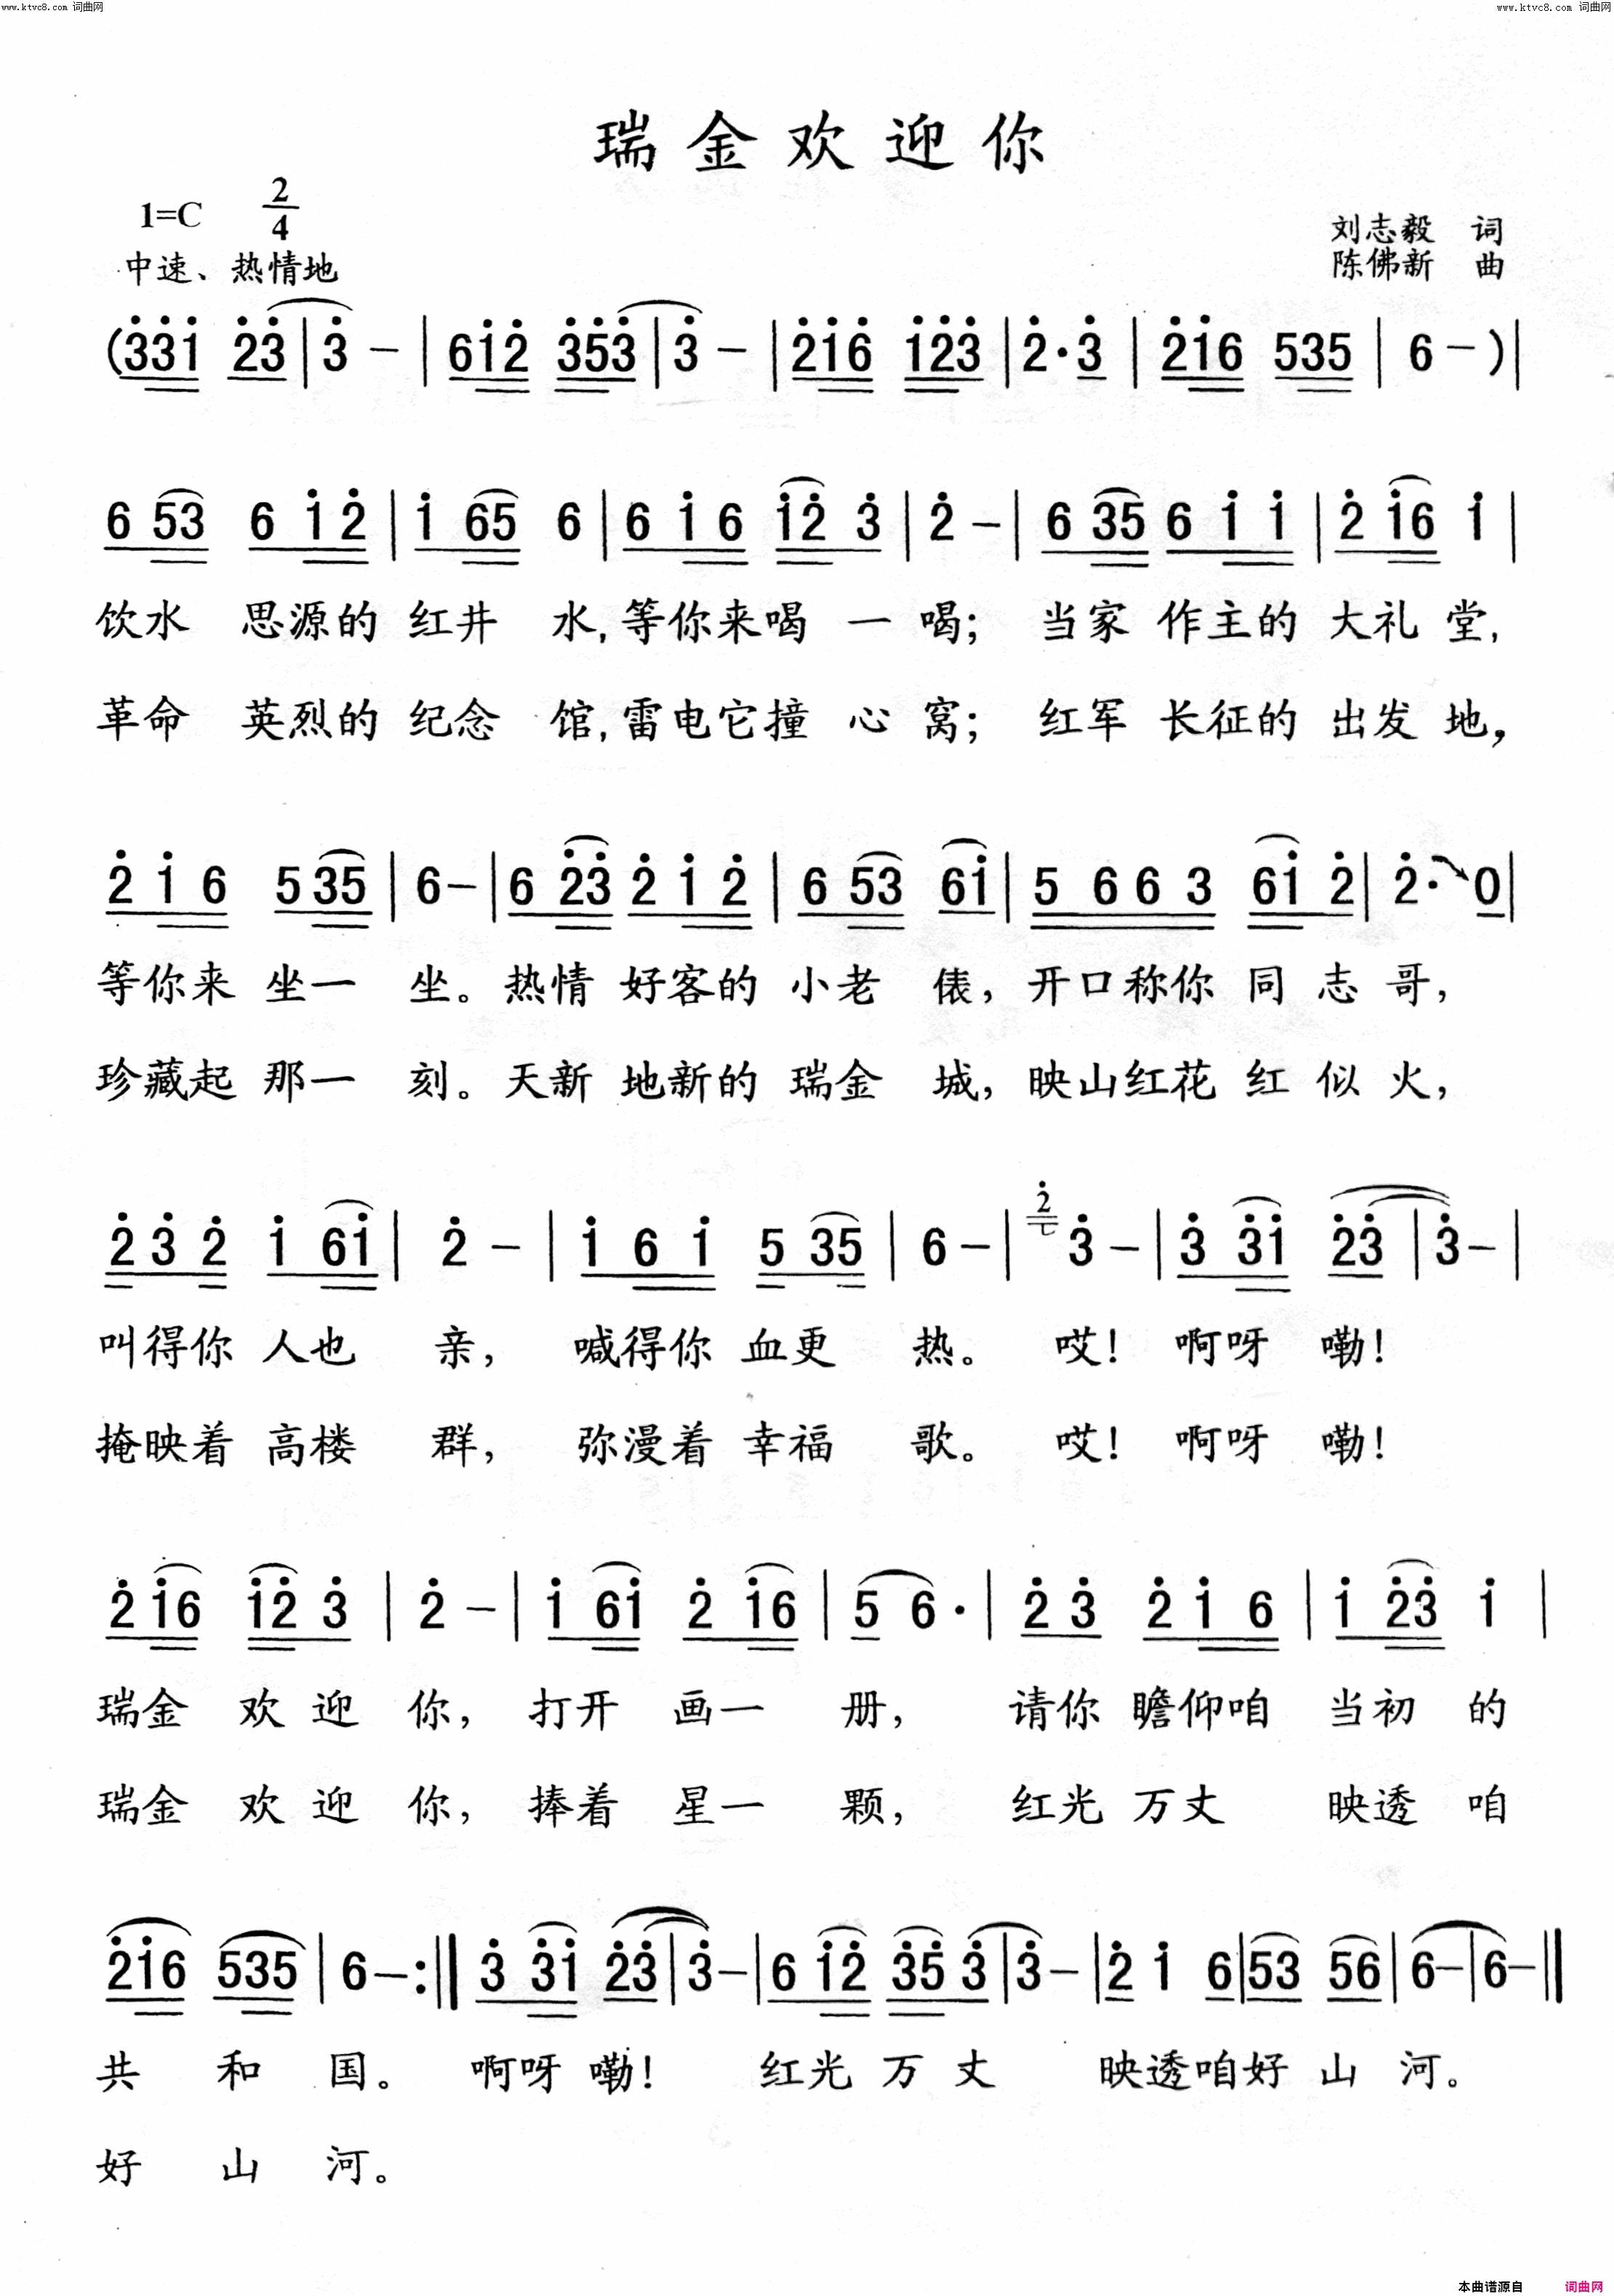 www.ktvc8.com 词曲网
www.ktvc8.com 词曲网
瑞金欢迎你
1=C 2/4
刘志毅 词
中速、热情地
陈佛新 曲
(3̇3̇1̇ 2̇3̇|3̇ –|61̇2̇ 3̇5̇3̇|3̇ –|2̇1̇6̇ 1̇2̇3̇|2̇·3̇|2̇1̇6 535|6 –)|
6 53 6 1̇ 2̇|1̇ 65 6|6 1̇ 6 1̇2̇ 3̇|2̇ –|6 35 6 1̇ 1̇|2̇ 1̇6 1̇|
饮水 思源的 红井 水,等你来喝 一 喝; 当家 作主的 大礼 堂,
革命 英烈的 纪念 馆,雷电它撞 心 窝; 红军 长征的 出发 地,
2̇ 1̇ 6 5 35|6 –|6 2̇3̇ 2̇ 1̇ 2̇|6 53 61̇|5 6 6 3 61̇ 2̇|2̇· 0|
等你来 坐一 坐。热情 好客的 小老 俵,开口称你 同 志 哥,
珍藏起 那一 刻。天新 地新的 瑞金 城,映山红花 红 似 火,
2̇ 3̇ 2̇ 1̇ 61̇|2̇ –|1̇ 6 1̇ 5 35|6 –|2̇ 3̇ –|3̇ 3̇1̇ 2̇3̇|3̇ –|
叫得你 人也 亲, 喊得你 血更 热。 哎! 啊呀 嘞!
掩映着 高楼 群, 弥漫着 幸福 歌。 哎! 啊呀 嘞!
2̇ 1̇6 1̇2̇ 3̇|2̇ –|1̇ 61̇ 2̇ 1̇6|5 6·|2̇ 3̇ 2̇ 1̇ 6|1̇ 2̇3̇ 1̇|
瑞金 欢 迎 你, 打开 画一 册, 请你 瞻仰咱 当初 的
瑞金 欢 迎 你, 捧着 星一 颗, 红光 万丈 映透 咱
2̇1̇6 535|6 –:‖3̇ 3̇1̇ 2̇3̇|3̇ –|6 1̇2̇ 3̇5̇ 3̇|3̇ –|2̇ 1̇ 6|53 56|6 –|6 –‖
共 和 国。 啊呀 嘞! 红光 万 丈 映透咱好 山 河。
好 山 河。
本曲谱源自 词曲网